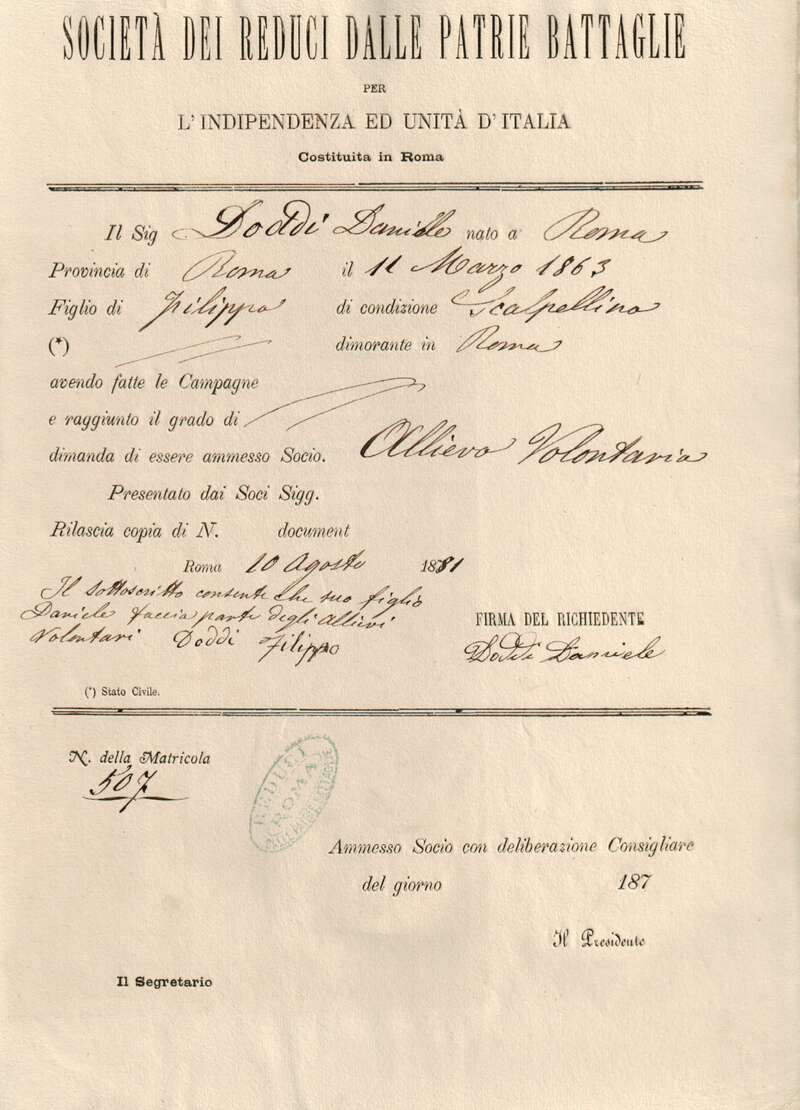 SOCIETÀ DEI REDUCI DALLE PATRIE BATTAGLIE
PER
L'INDIPENDENZA ED UNITÀ D'ITALIA
Costituita in Roma
Il Sig Doddi Daniele nato a Roma
Provincia di Roma il 11 Marzo 1863
Figlio di Filippo di condizione Scalpellino
(*) dimorante in Roma
avendo fatte le Campagne
e raggiunto il grado di
dimanda di essere ammesso Socio. Allievo Volontario
Presentato dai Soci Sigg.
Rilascia copia di N. document
Roma 10 Agosto 1881
Il sottoscritto consente che suo figlio
Daniele faccia parte degli Allievi
Volontari Doddi Filippo
FIRMA DEL RICHIEDENTE
Doddi Daniele
(*) Stato Civile.
N. della Matricola
507
REDUCI
ROMA
DALLE PATRIE BATTAGLIE
Ammesso Socio con deliberazione Consigliare
del giorno 187
Il Presidente
Il Segretario